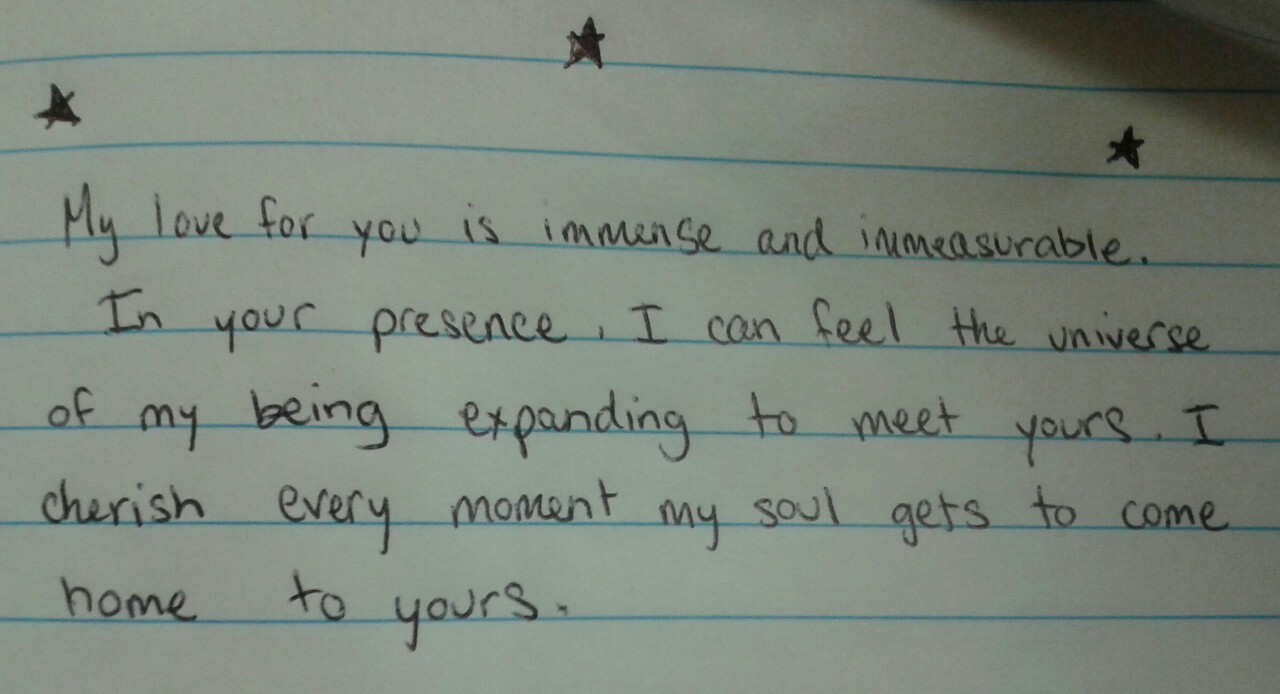 My love for you is immense and inmeasurable.
In your presence, I can feel the universe
of my being expanding to meet yours. I
cherish every moment my soul gets to come
home to yours.